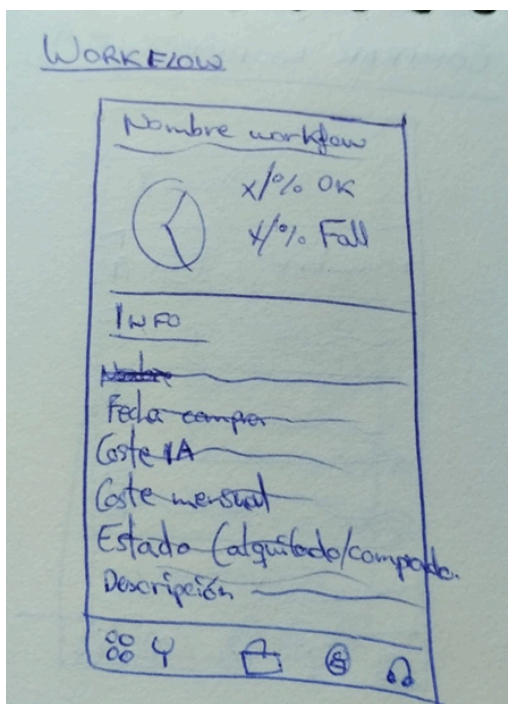 WORKFLOW
Nombre workflow
x/% OK
x/% Fall
INFO
Nombre
Fecha compra
Coste IA
Coste mensual
Estado (alquilado/comprado.
Descripción